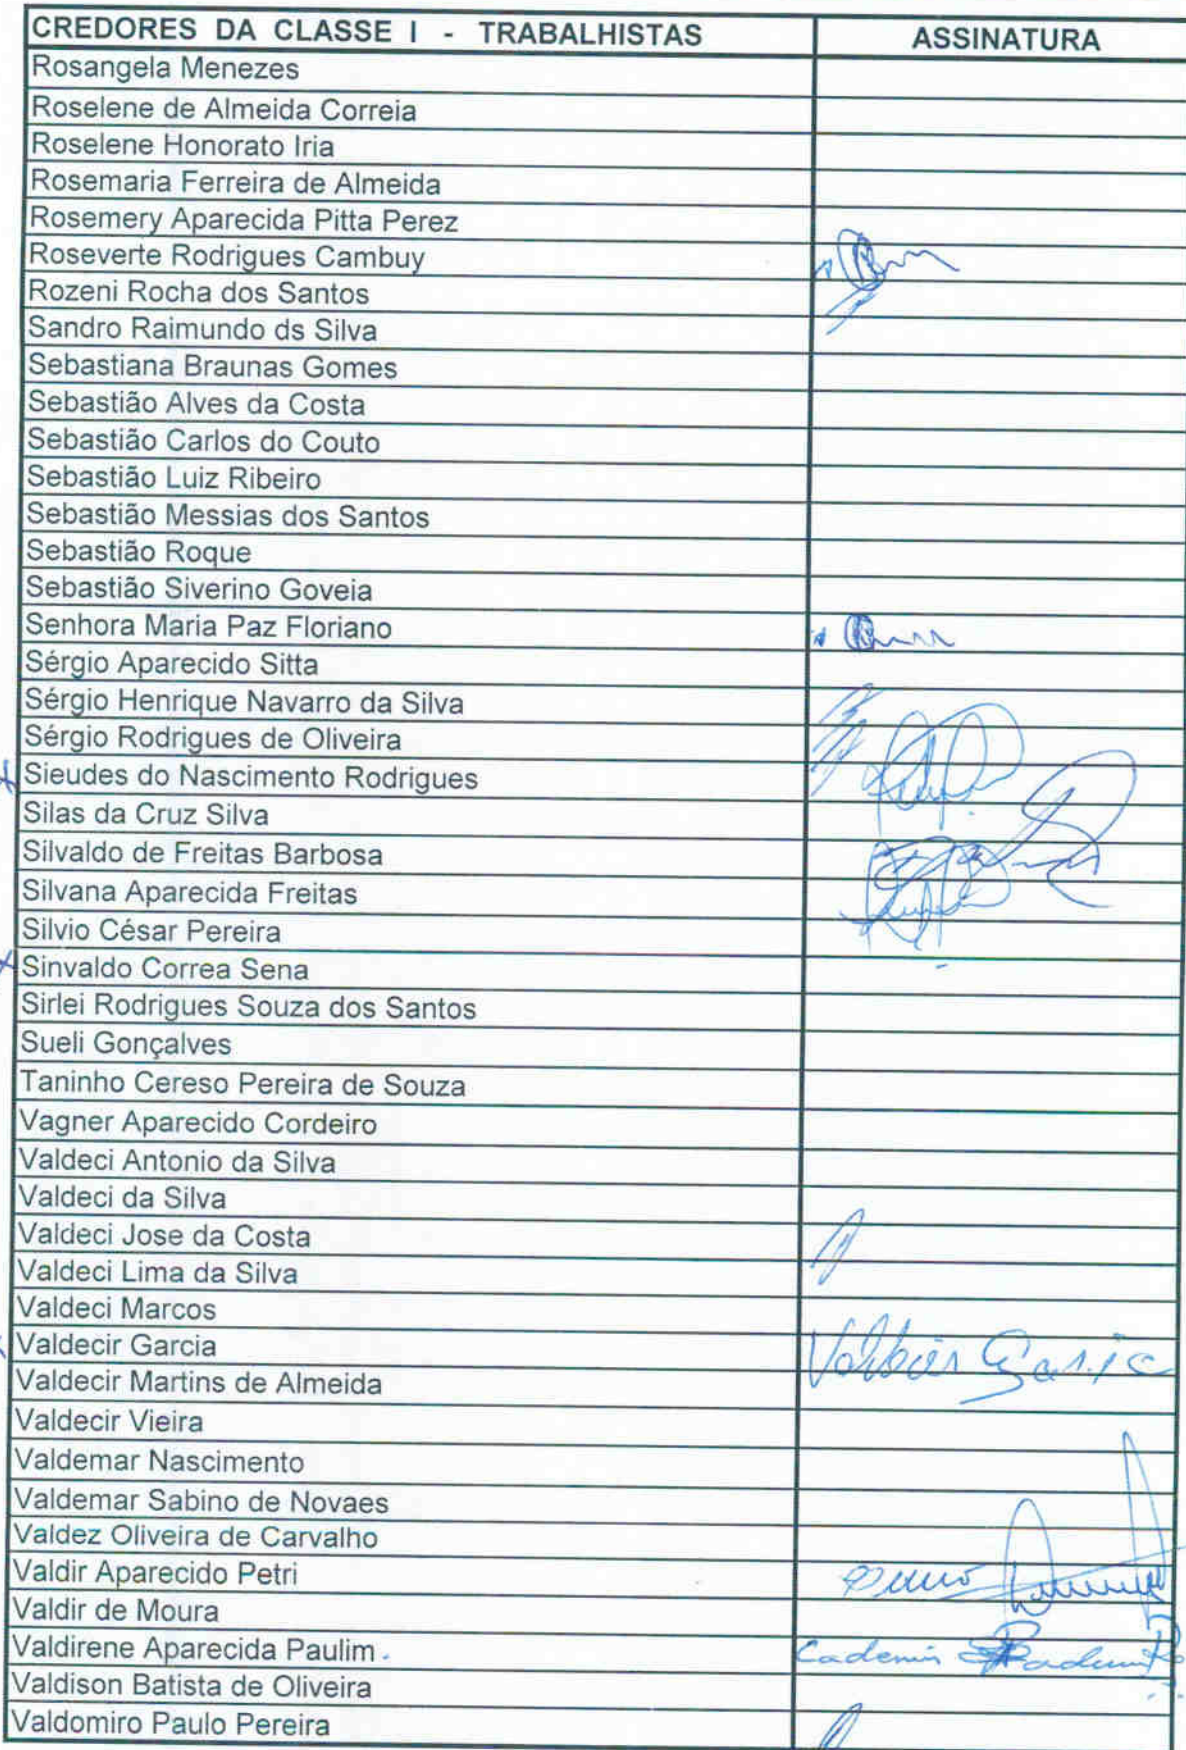 CREDORES DA CLASSE I - TRABALHISTAS ASSINATURA
Rosangela Menezes
Roselene de Almeida Correia
Roselene Honorato Iria
Rosemaria Ferreira de Almeida
Rosemery Aparecida Pitta Perez
Roseverte Rodrigues Cambuy
Rozeni Rocha dos Santos
Sandro Raimundo ds Silva
Sebastiana Braunas Gomes
Sebastião Alves da Costa
Sebastião Carlos do Couto
Sebastião Luiz Ribeiro
Sebastião Messias dos Santos
Sebastião Roque
Sebastião Siverino Goveia
Senhora Maria Paz Floriano
Sérgio Aparecido Sitta
Sérgio Henrique Navarro da Silva
Sérgio Rodrigues de Oliveira
Sieudes do Nascimento Rodrigues
Silas da Cruz Silva
Silvaldo de Freitas Barbosa
Silvana Aparecida Freitas
Silvio César Pereira
Sinvaldo Correa Sena
Sirlei Rodrigues Souza dos Santos
Sueli Gonçalves
Taninho Cereso Pereira de Souza
Vagner Aparecido Cordeiro
Valdeci Antonio da Silva
Valdeci da Silva
Valdeci Jose da Costa
Valdeci Lima da Silva
Valdeci Marcos
Valdecir Garcia
Valdecir Martins de Almeida
Valdecir Vieira
Valdemar Nascimento
Valdemar Sabino de Novaes
Valdez Oliveira de Carvalho
Valdir Aparecido Petri
Valdir de Moura
Valdirene Aparecida Paulim.
Valdison Batista de Oliveira
Valdomiro Paulo Pereira